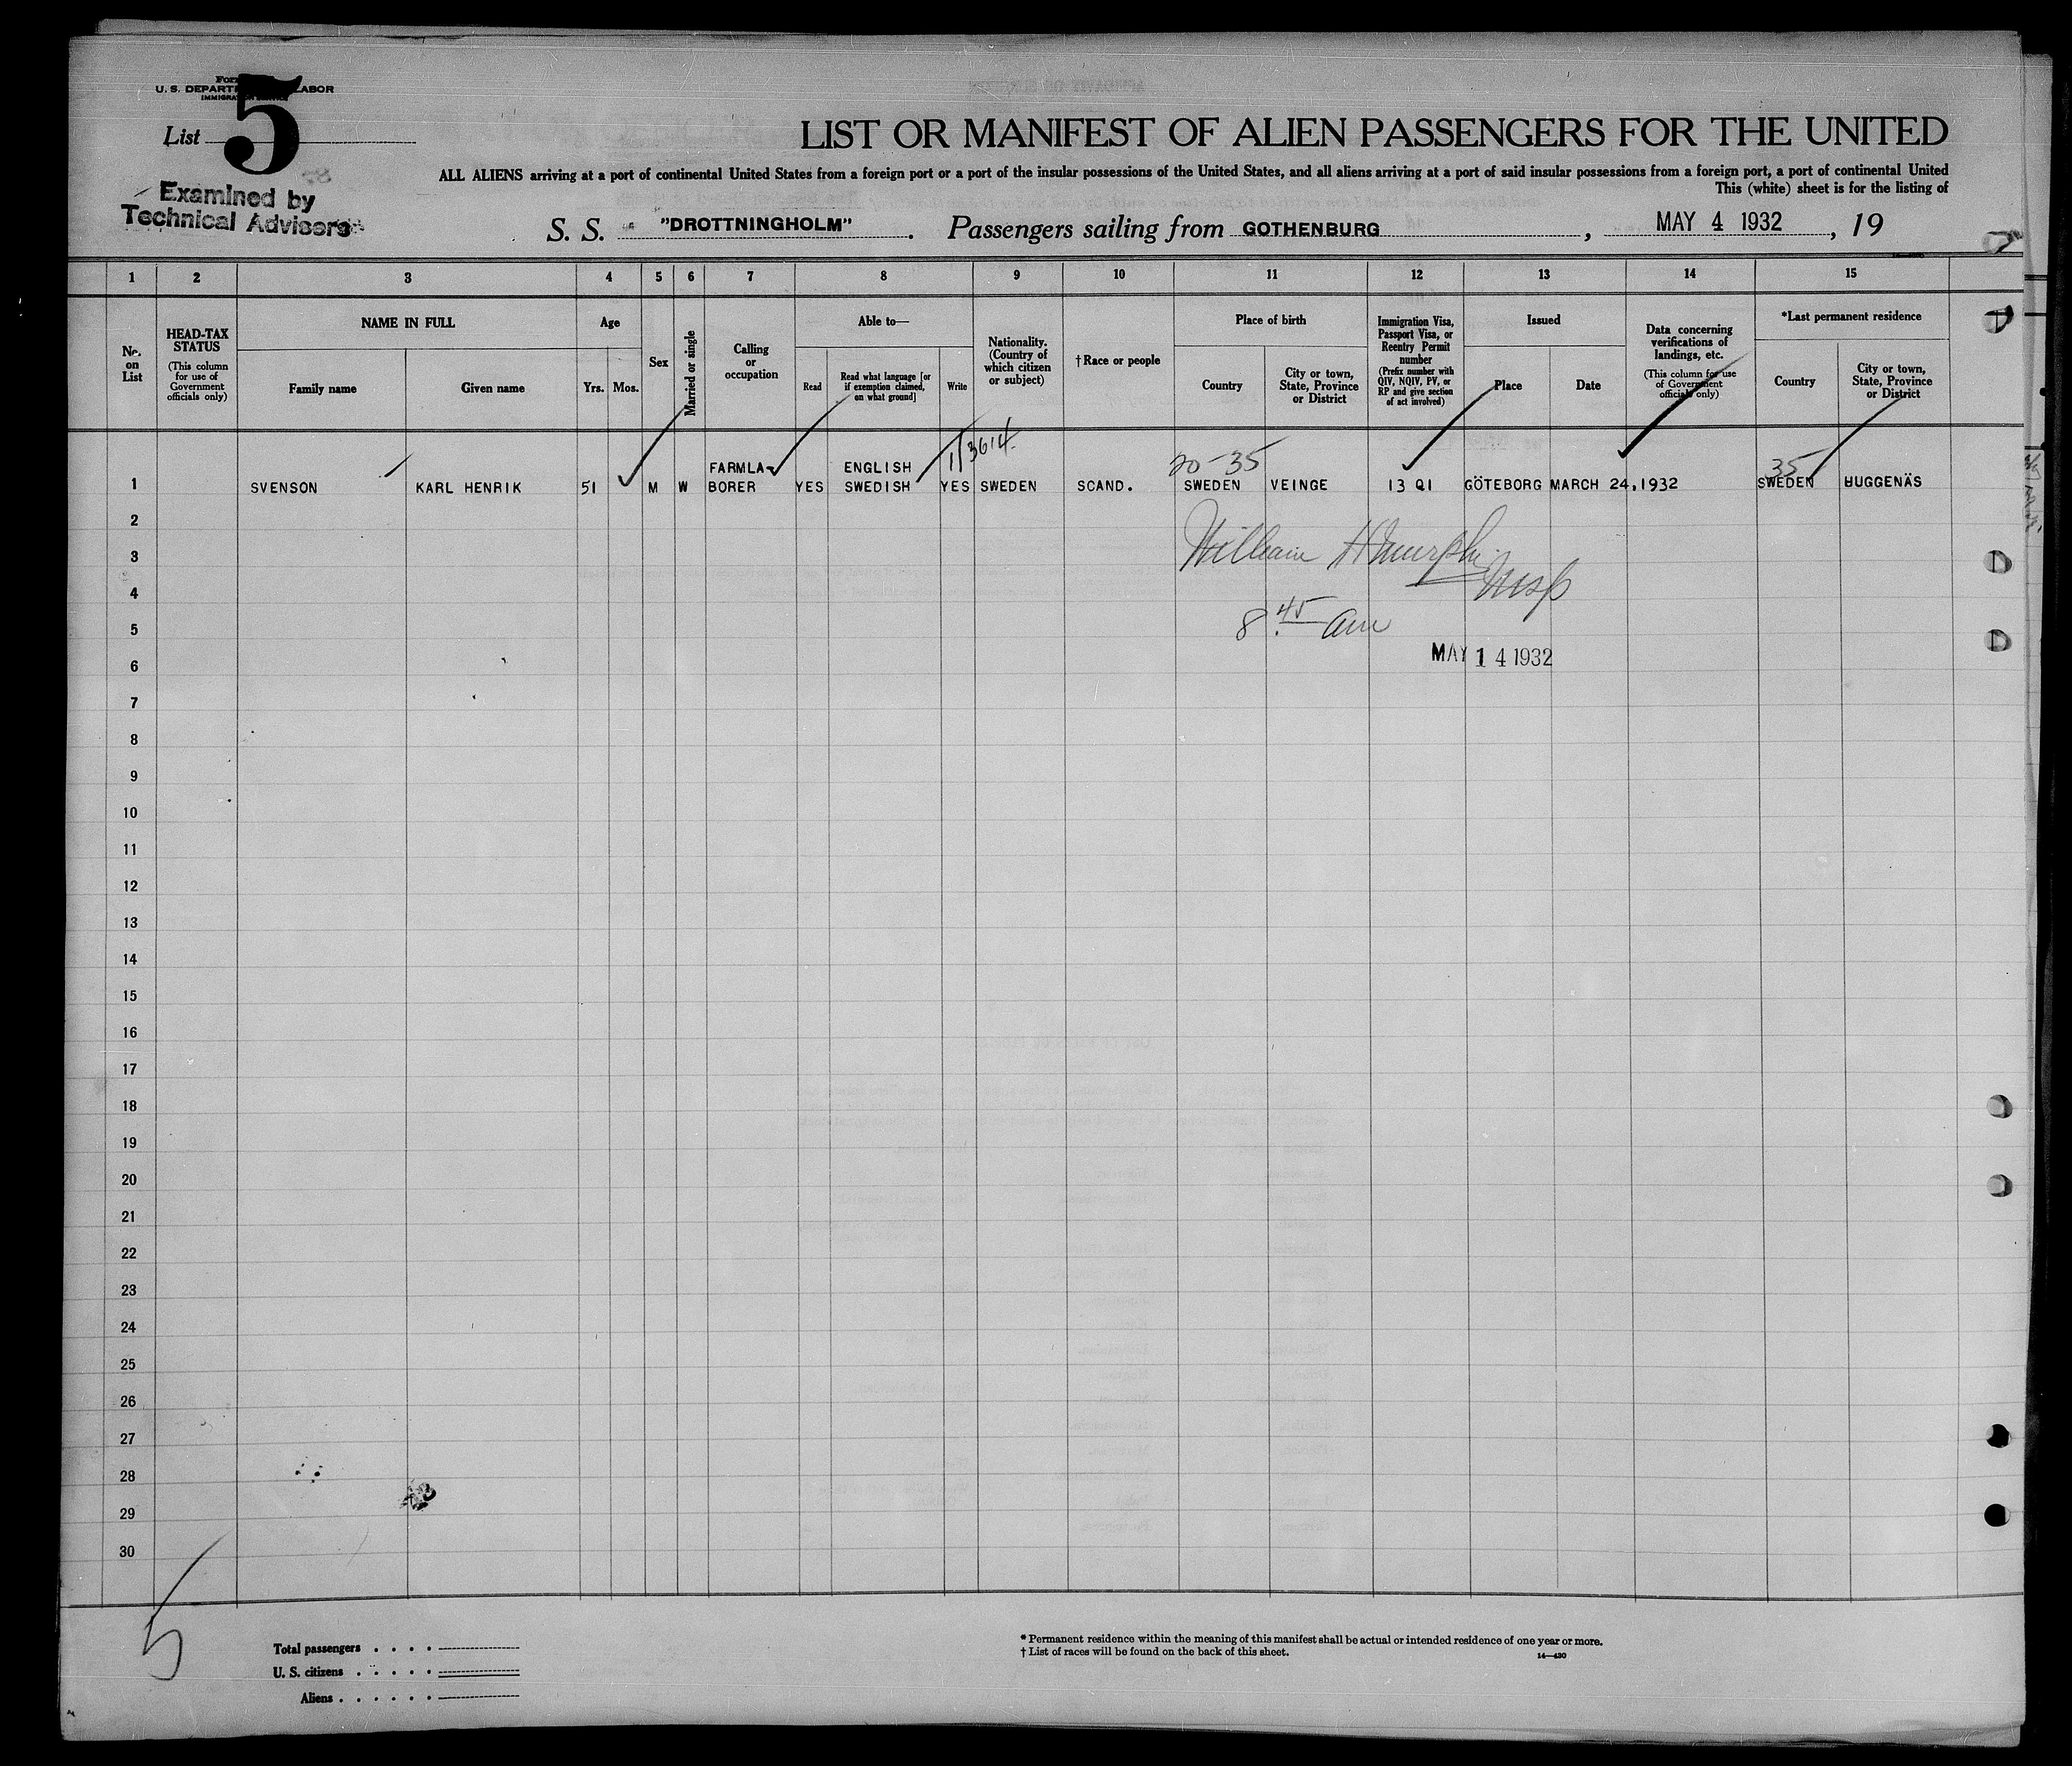 U. S. DEPART LABOR
List 5
Examined by
Technical Advisers
LIST OR MANIFEST OF ALIEN PASSENGERS FOR THE UNITED
ALL ALIENS arriving at a port of continental United States from a foreign port or a port of the insular possessions of the United States, and all aliens arriving at a port of said insular possessions from a foreign port, a port of continental United
This (white) sheet is for the listing of
S. S. "DROTTNINGHOLM". Passengers sailing from GOTHENBURG, MAY 4 1932, 19
1 2 3 4 5 6 7 8 9 10 11 12 13 14 15
No. on List
HEAD-TAX STATUS
(This column for use of Government officials only)
NAME IN FULL
Family name
Given name
Age
Yrs. Mos.
Sex
Married or single
Calling or occupation
Able to—
Read
Read what language [or if exemption claimed, on what ground]
Write
Nationality. (Country of which citizen or subject)
† Race or people
Place of birth
Country
City or town, State, Province or District
Immigration Visa, Passport Visa, or Reentry Permit number
(Prefix number with QIV, NQIV, PV, or RP and give section of act involved)
Issued
Place
Date
Data concerning verifications of landings, etc.
(This column for use of Government officials only)
*Last permanent residence
Country
City or town, State, Province or District
20-35
35
FARMLA- ENGLISH
1 SVENSON KARL HENRIK 51 M W BORER YES SWEDISH YES SWEDEN SCAND. SWEDEN VEINGE 13 QI GÖTEBORG MARCH 24, 1932 SWEDEN HUGGENÄS
2
William H Murphy
3
Insp
4
8 45 am
5
6
MAY 14 1932
7
8
9
10
11
12
13
14
15
16
17
18
19
20
21
22
23
24
25
26
27
28
29
30
5
Total passengers . . . .
U. S. citizens . . . . .
Aliens . . . . . .
* Permanent residence within the meaning of this manifest shall be actual or intended residence of one year or more.
† List of races will be found on the back of this sheet.
14—430